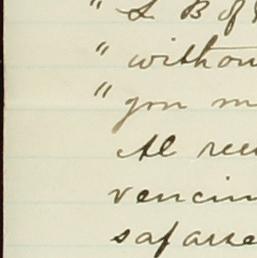 " L B of
" withou
" you m
Al rec
vencim
safarse